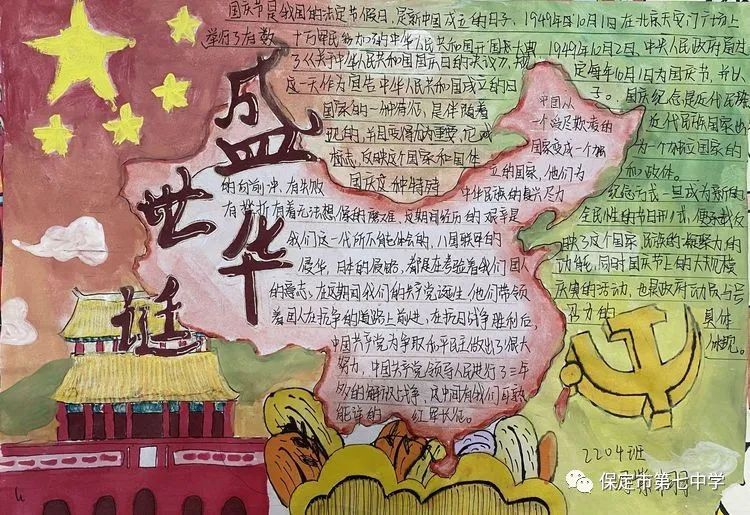 国庆节是我国的法定节假日,是新中国成立的日子。1949年10月1日在北京天安门广场上
举行了有数十万军民参加的中华人民共和国开国大典
1949年10月2日,中央人民政府通过
了《关于中华人民共和国国庆日的决议》,规
定每年10月1日为国庆节,并以
这一天作为宣告中华人民共和国成立的日
子。国庆纪念是近代民族
国家的一种特征,是伴随着
近代民族国家
现的,并且变得尤为重要,它成
为一个独立国家的
标志,反映这个国家的国体
和政体。
国庆这种特殊
纪念方式一旦成为新的
全民性的节日形式,便承载反
映了这个国家、民族的凝聚力的
功能,同时国庆节上的大规模
庆典的活动,也是政府动员与号
召力的
具体
体现。
盛世华诞
中国从
一个
国家变成一个独
立的国家,他们为
中华民族的复兴尽力
的向前冲,有失败
有挫折有着无法想像的魔难,这期间经历的艰辛是
我们这一代所不能体会的,八国联军的
侵华,日本的侵略,都是在考验着我们国人
的意志,在这期间我们的共产党诞生,他们带领
着国人在抗争的道路上前进,在抗日战争胜利后,
中国共产党为争取和平民主做出了很大
努力,中国共产党领导人民进行了三年
多的解放战争,这中间有我们耳熟
能详的 红军长征。
2204班
保定市第七中学